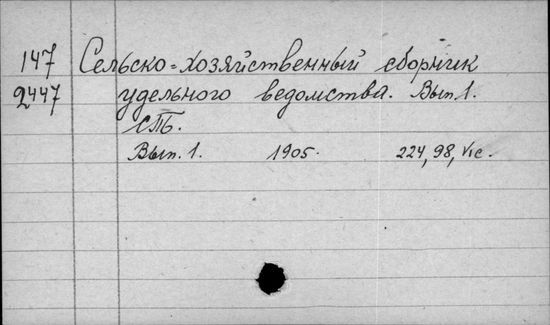 147 Сельско=хозяйственный сборник
2447 удельного ведомства. Вып. 1.
СПБ.
Вып. 1. 1905. 224, 98, VI с.